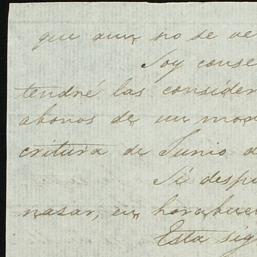 que aun no se ve
Soy conse
tendré las consider
abonos de un mon
critura de Junio d
Si despu
nasar, en horabuen
Esta sig